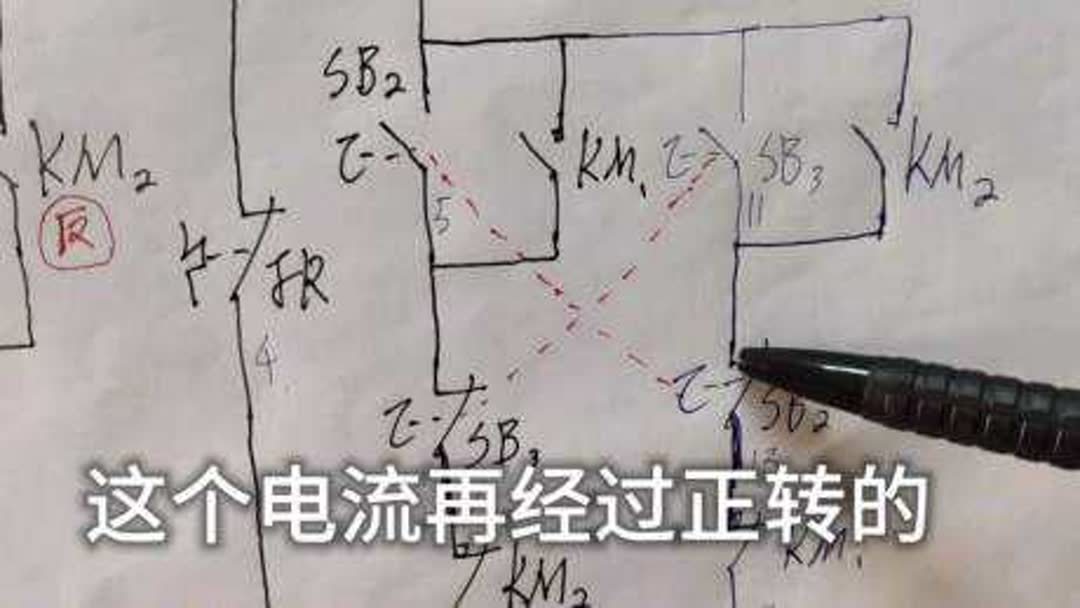 SB₂
KM₂
KM₁
SB₃
KM₂
反
5
11
FR
4
SB₃
SB₂
这个电流再经过正转的
KM₂
KM₁